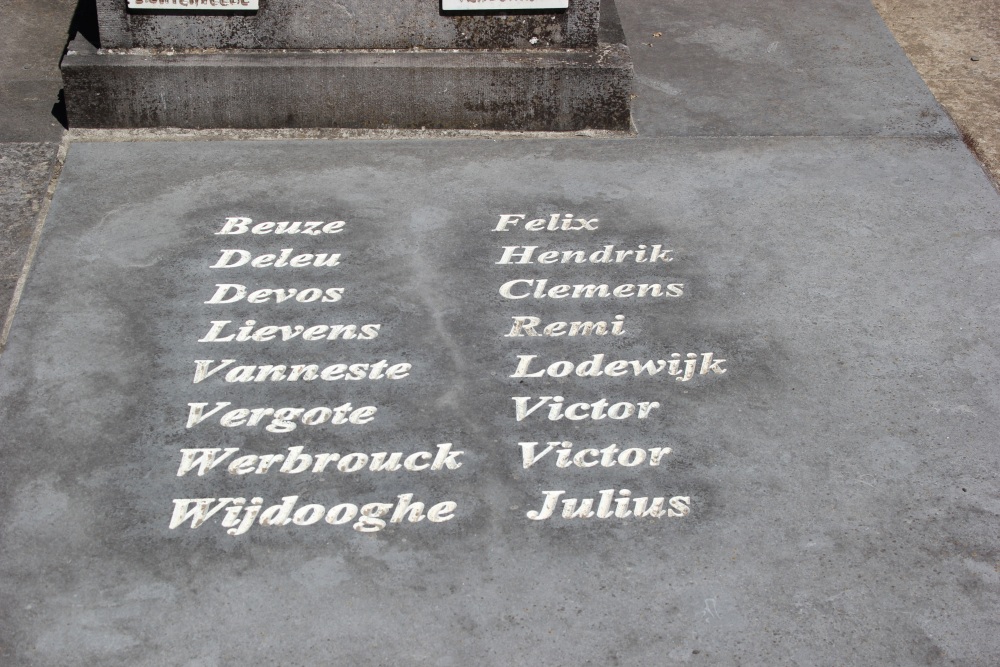 Beuze Felix
Deleu Hendrik
Devos Clemens
Lievens Remi
Vanneste Lodewijk
Vergote Victor
Werbrouck Victor
Wijdooghe Julius